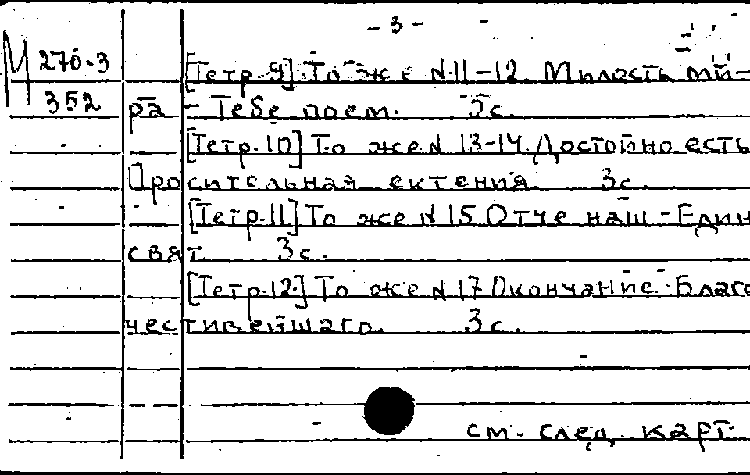 - 3 -
М 270-3
352
[Тетр. 9] То же N 11-12. Милость ми-
ра - Тебе поем. 3 с.
[Тетр. 10] То же N 13-14. Достойно есть
Просительная ектения 3 с.
[Тетр. 11] То же N 15 Отче наш - Един
свят 3 с.
[Тетр. 12] То же N 17 Окончание. Благо
честивейшаго. 3 с.
см. след. карт.